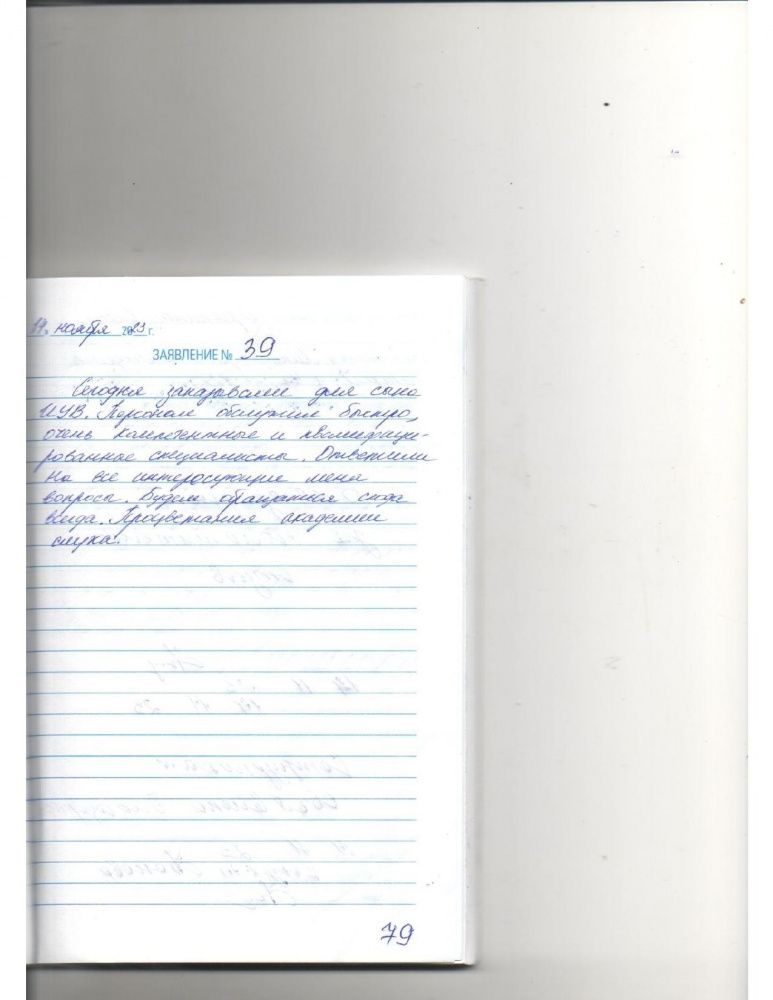 17. ноября 2023 г.
ЗАЯВЛЕНИЕ № 39
Сегодня заказывали для сына
ИУВ. Персонал обслужил быстро,
очень компетентные и квалифици-
рованные специалисты. Ответили
на все интересующие меня
вопросы. Будем обращаться сюда
всегда. Процветания академии
слуха.
79